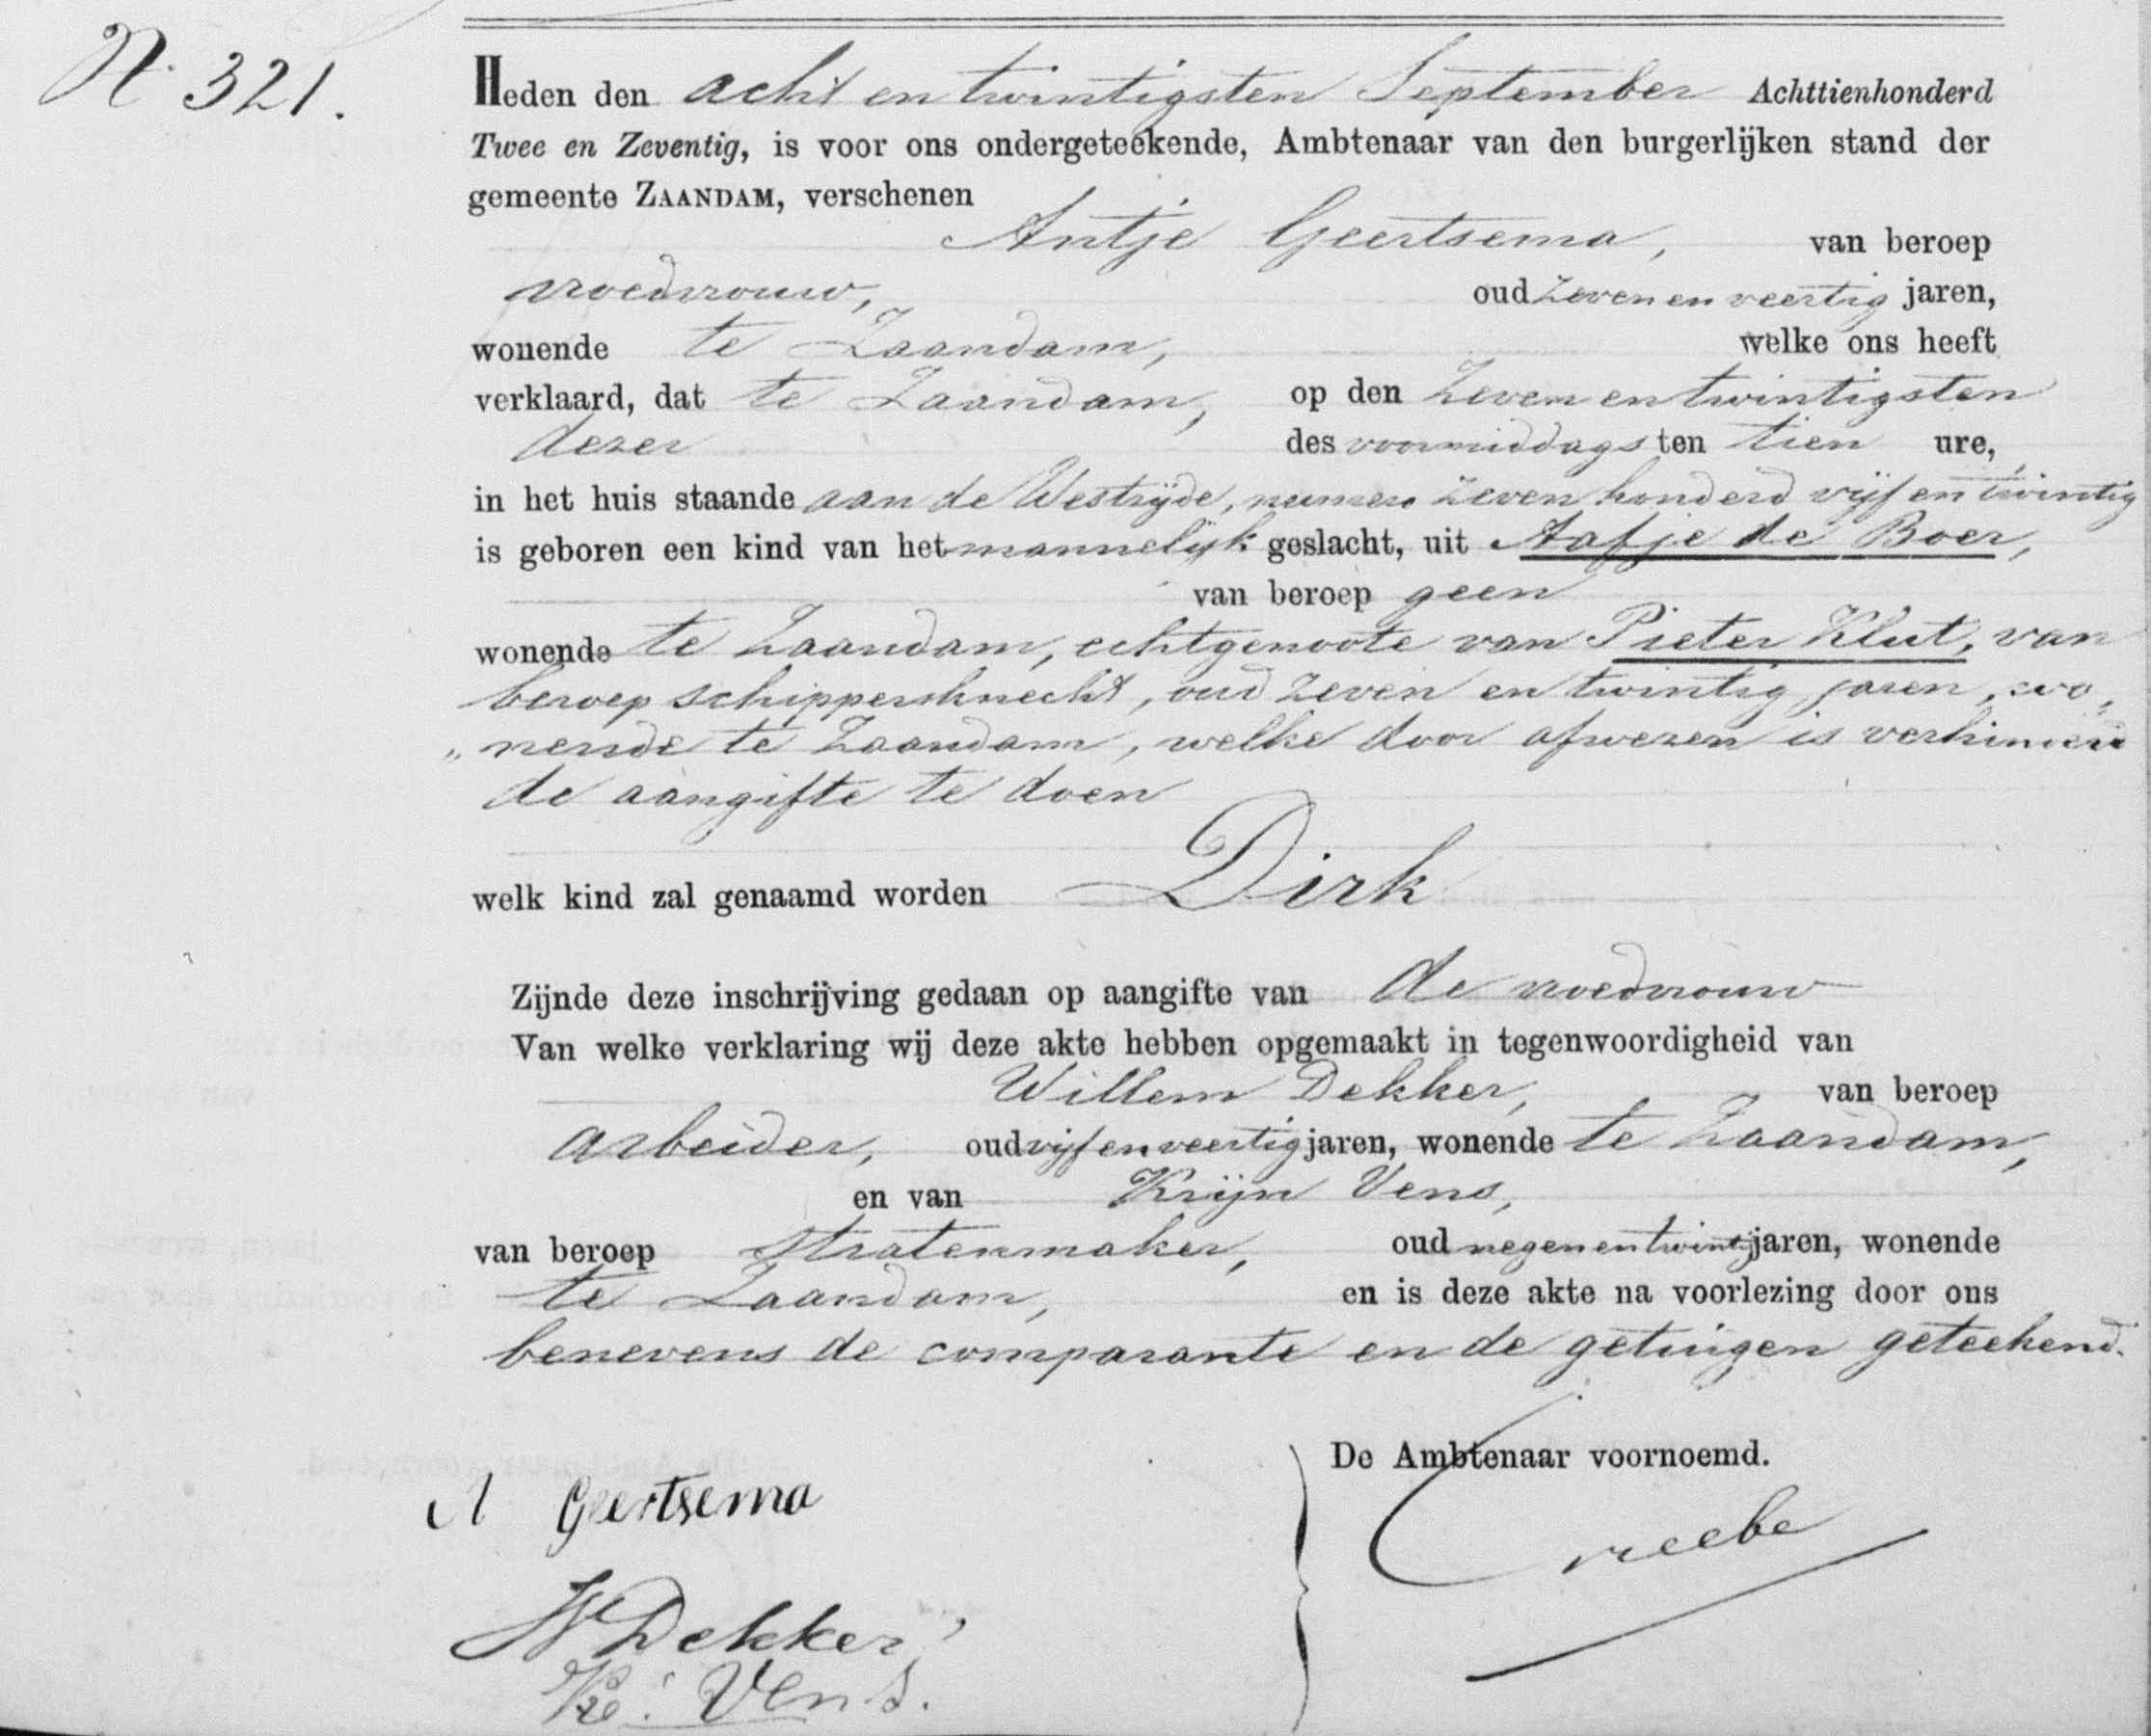 N. 321.
Heden den acht en twintigsten September Achttienhonderd
Twee en Zeventig, is voor ons ondergeteekende, Ambtenaar van den burgerlijken stand der
gemeente ZAANDAM, verschenen
Antje Geertsema, van beroep
vroedvrouw, oud zeven en veertig jaren,
wonende te Zaandam, welke ons heeft
verklaard, dat te Zaandam, op den zeven en twintigsten
dezer des voormiddags ten tien ure,
in het huis staande aan de Westzijde, numero zeven honderd vijf en twintig
is geboren een kind van het mannelijk geslacht, uit Aafje de Boer,
van beroep geen
wonende te Zaandam, echtgenoote van Pieter Klut, van
beroep schippersknecht, oud zeven en twintig jaren, wo„
„nende te Zaandam, welke door afwezen is verhinderd
de aangifte te doen
welk kind zal genaamd worden Dirk
Zijnde deze inschrijving gedaan op aangifte van de vroedvrouw
Van welke verklaring wij deze akte hebben opgemaakt in tegenwoordigheid van
Willem Dekker, van beroep
arbeider, oud vijf en veertig jaren, wonende te Zaandam,
en van Krijn Vens,
van beroep stratenmaker, oud negen en twintig jaren, wonende
te Zaandam, en is deze akte na voorlezing door ons
benevens de comparante en de getuigen geteekend.
De Ambtenaar voornoemd.
A Geertsema
W Dekker
Kr. Vens.